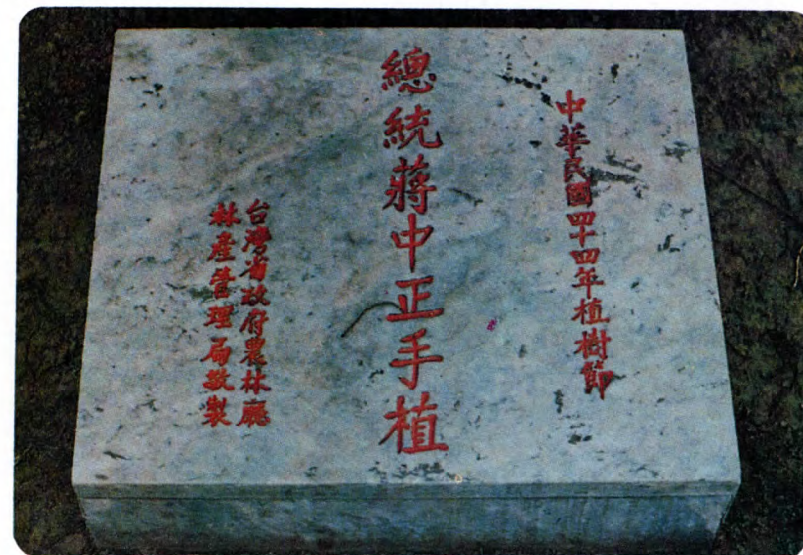 中華民國四十四年植樹節
總統蔣中正手植
台灣省政府農林廳
林產管理局敬製